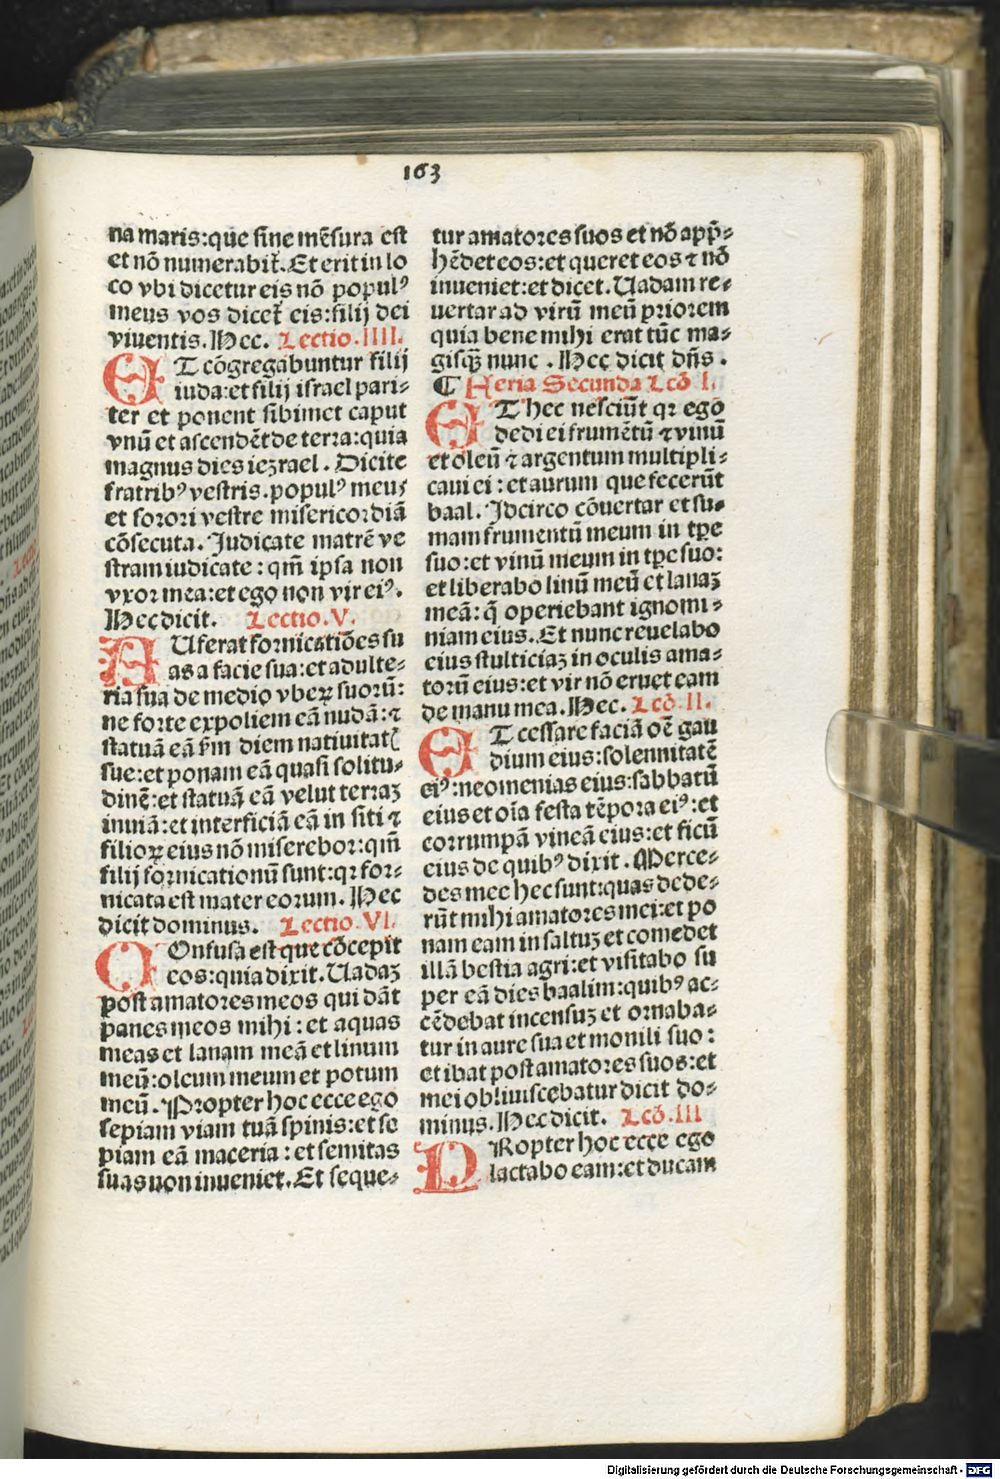 163
na maris:que sine mẽsura est
et nõ numerabit̃. Et erit in lo
co vbi dicetur eis nõ populꝰ
meus vos dicet̃ eis:filij dei
viuentis. Hec. Lectio.IIII.
ET cõgregabuntur filij
iuda:et filij israel pari-
ter et ponent sibimet caput
vnũ et ascendẽt de terra:quia
magnus dies iezrael. Dicite
fratribꝰ vestris.populꝰ meus
et sorori vestre misericordiã
cõsecuta. Judicate matrẽ ve
stram iudicate: qm̃ ipsa non
vxor mea:et ego non vir eiꝰ.
Hec dicit. Lectio.V.
AUferat fornicatiões su
as a facie sua:et adulte-
ria sua de medio vberꝝ suorũ:
ne forte expoliem eã nudã:⁊
statuã eã s̃m diem natiuitatꝭ
sue:et ponam eã quasi solitu-
dinẽ:et statuã eã velut terraꝫ
inuiã:et interficiã eã in siti ⁊
filioꝝ eius nõ miserebor:qm̃
filij fornicationũ sunt:qꝛ for-
nicata est mater eorum. Hec
dicit dominus. Lectio.VI.
COnfusa est que cõcepit
eos:quia dixit. Uadaꝫ
post amatores meos qui dãt
panes meos mihi:et aquas
meas et lanam meã et linum
meũ:oleum meum et potum
meũ. Propter hoc ecce ego
sepiam viam tuã spinis:et se
piam eã maceria:et semitas
suas non inueniet. Et seque-
tur amatores suos et nõ app̃-
hẽdet eos:et queret eos ⁊ nõ
inueniet:et dicet. Uadam re-
uertar ad virũ meũ priorem
quia bene mihi erat tũc ma-
gisqꝫ nunc. Hec dicit dñs.
¶ Feria Secunda Lcõ I.
ET hec nesciũt qꝛ ego
dedi ei frumẽtũ ⁊ vinũ
et oleũ ⁊ argentum multipli-
caui ei: et aurum que fecerũt
baal. Idcirco cõuertar et su-
mam frumentũ meum in tp̃e
suo:et vinũ meum in tp̃e suo:
et liberabo linũ meũ et lanaꝫ
meã: q̃ operiebant ignomi-
niam eius. Et nunc reuelabo
eius stulticiaꝫ in oculis ama-
torũ eius:et vir nõ eruet eam
de manu mea. Hec. Lcõ.II.
ET cessare faciã oẽ gau
dium eius:solennitatẽ
eiꝰ:neomenias eius:sabbatũ
eius et oĩa festa tẽpora eiꝰ:et
corrumpã vineã eius:et ficũ
eius de quibꝰ dixit. Merce-
des mee hec sunt:quas dede-
rũt mihi amatores mei:et po
nam eam in saltuꝫ et comedet
illã bestia agri:et visitabo su
per eã dies baalim:quibꝰ ac-
cẽdebat incensuꝫ et ornaba-
tur in aure sua et monili suo:
et ibat post amatores suos:et
mei obliuiscebatur dicit do-
minus. Hec dicit. Lcõ.III
PRopter hoc ecce ego
lactabo eam:et ducam
Digitalisierung gefördert durch die Deutsche Forschungsgemeinschaft - DFG